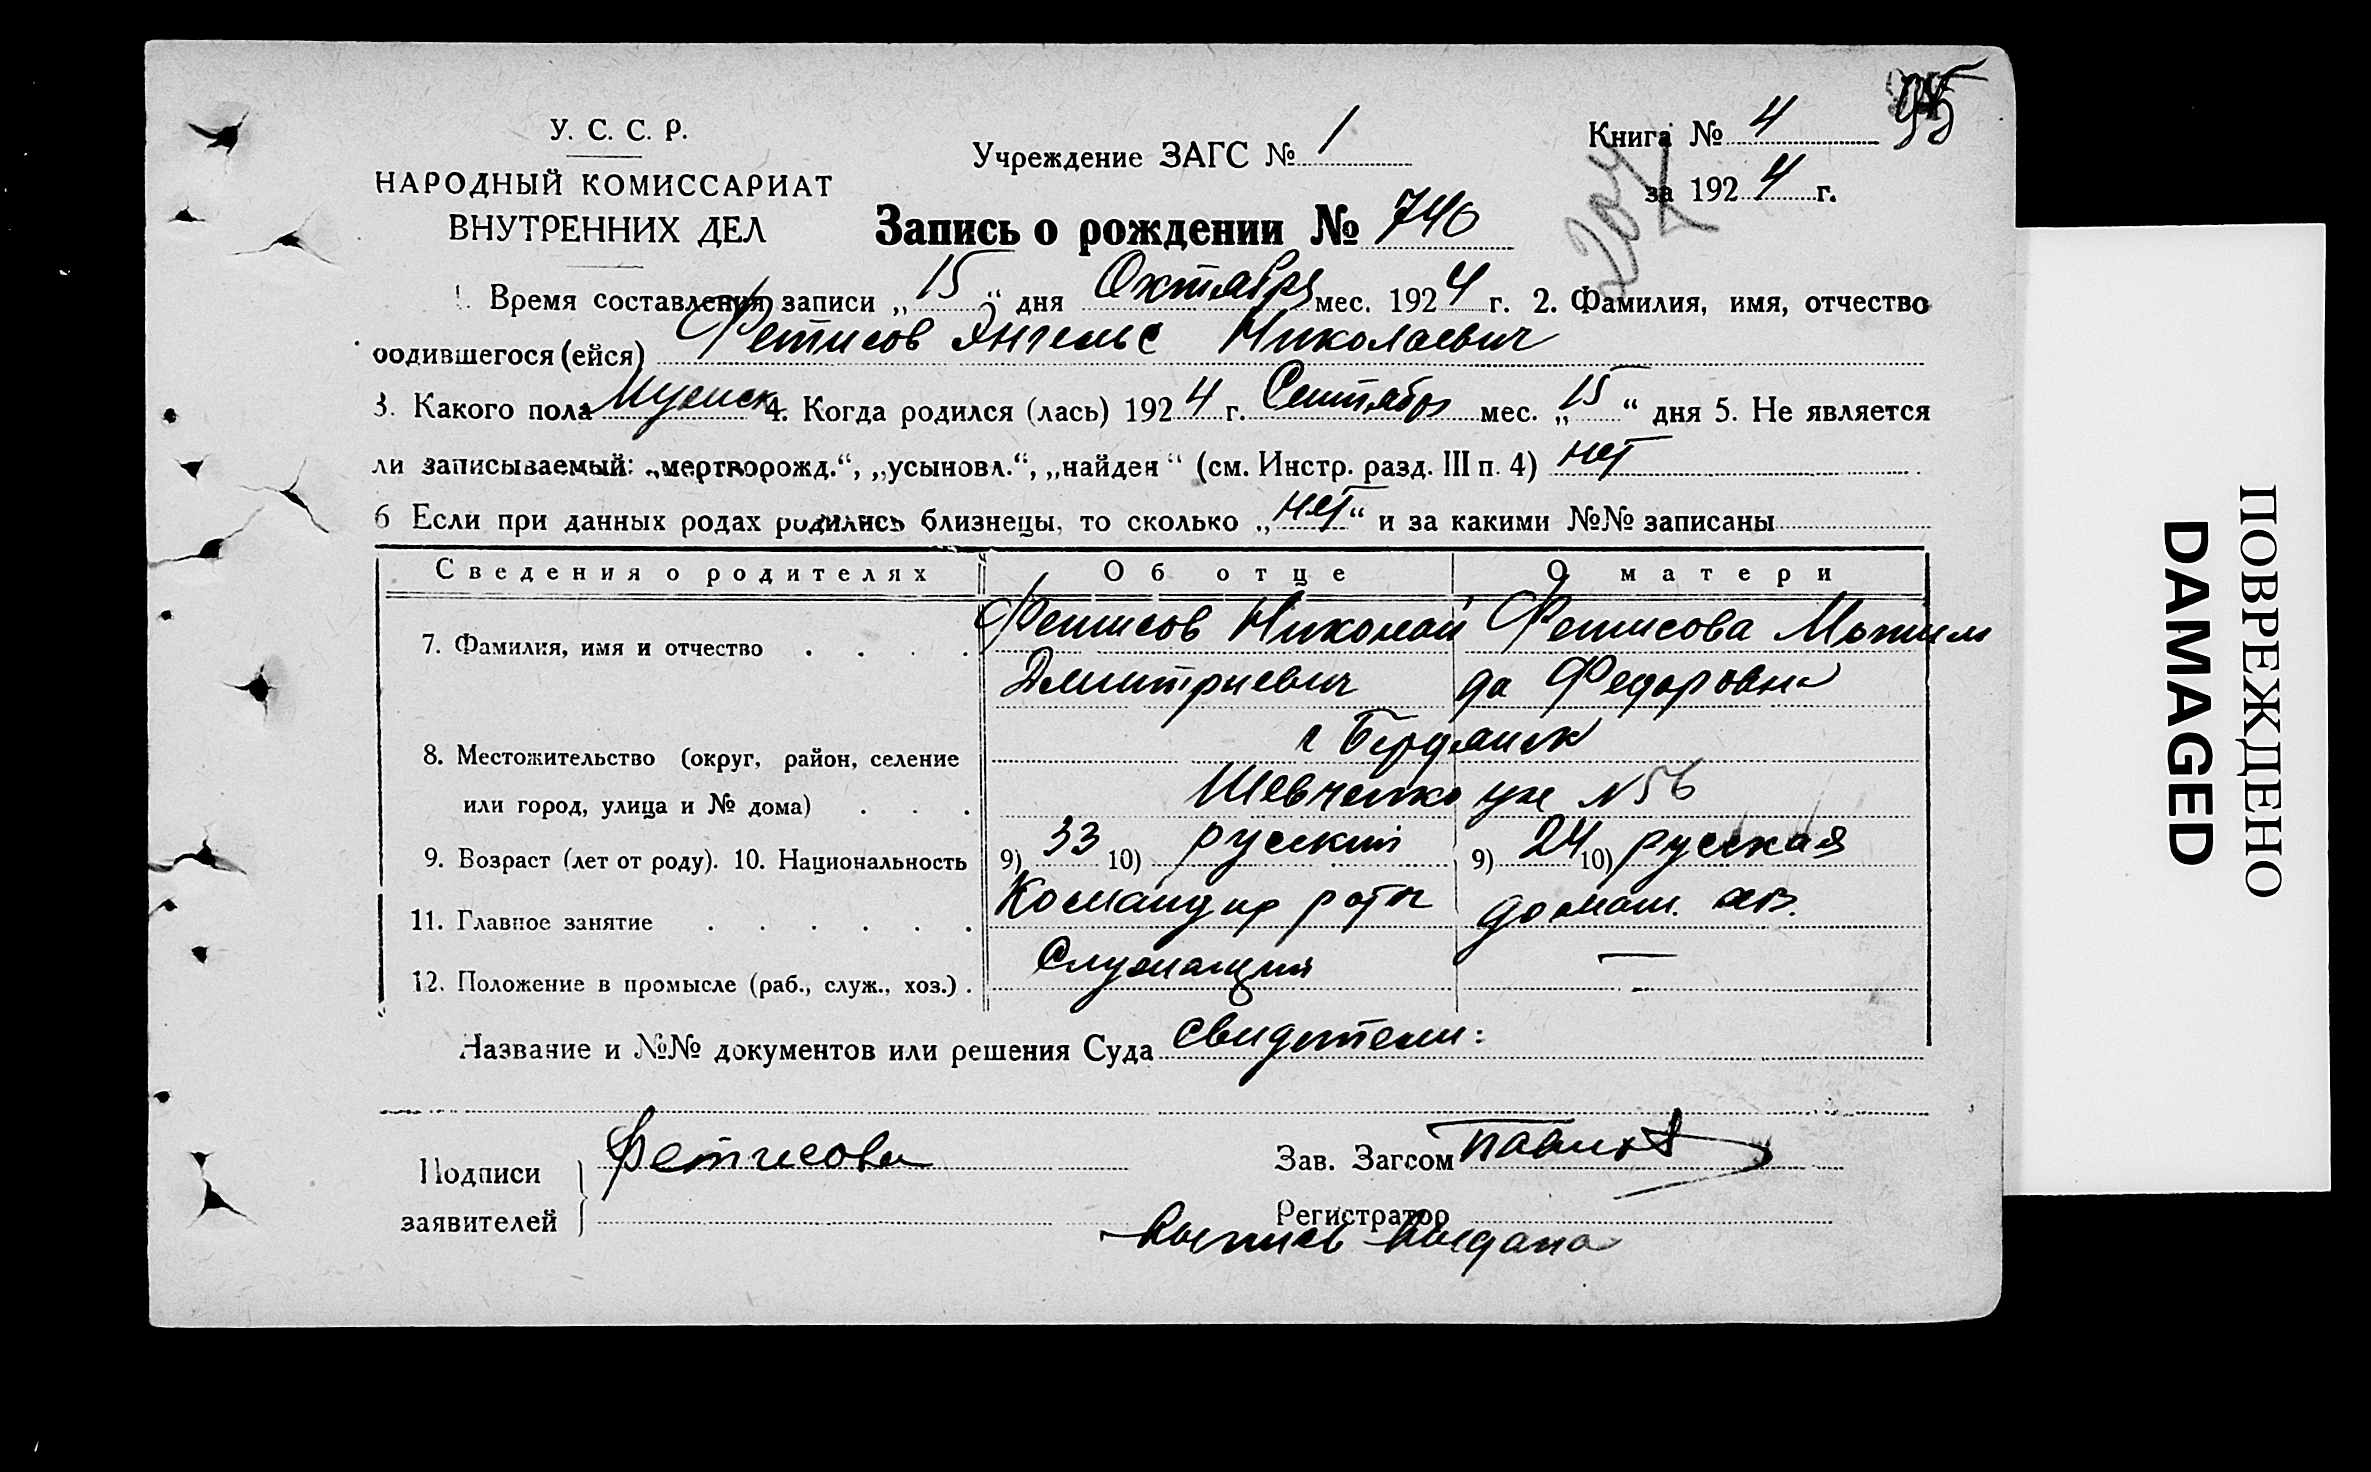 У. С. С. Р.
НАРОДНЫЙ КОМИССАРИАТ
ВНУТРЕННИХ ДЕЛ
Учреждение ЗАГС № 1
Книга № 4
за 1924 г.
204
Запись о рождении № 746
1. Время составления записи „15“ дня Октября мес. 1924 г. 2. Фамилия, имя, отчество
родившегося (ейся) Фетисов Энгельс Николаевич
3. Какого пола Мужск 4. Когда родился (лась) 1924 г. Сентябр мес. „15“ дня 5. Не является
ли записываемый: „мертворожд.“, „усыновл.“, „найден“ (см. Инстр. разд. III п. 4) нет
6 Если при данных родах родились близнецы, то сколько „нет“ и за какими №№ записаны
Сведения о родителях Об отце О матери
7. Фамилия, имя и отчество Фетисов Николай Фетисова Матил
Дмитриевич да Федоровна
8. Местожительство (округ, район, селение г Бердянск
или город, улица и № дома) Шевченко ул N 56
9. Возраст (лет от роду). 10. Национальность 9) 33 10) русский 9) 24 10) русская
11. Главное занятие Командир роты домаш. хоз.
12. Положение в промысле (раб., служ., хоз.) Служащий —
Название и №№ документов или решения Суда свидетели:
Подписи
заявителей
Фетисова
Зав. Загсом
Регистратор
ПОВРЕЖДЕНО
DAMAGED